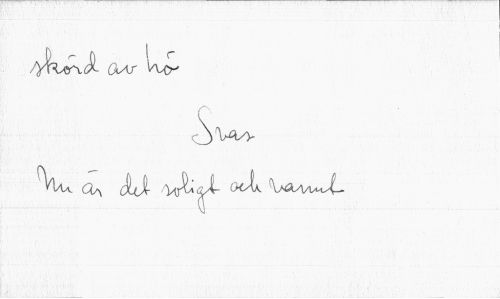 skörd av hö
Svar
Nu är det soligt och varmt